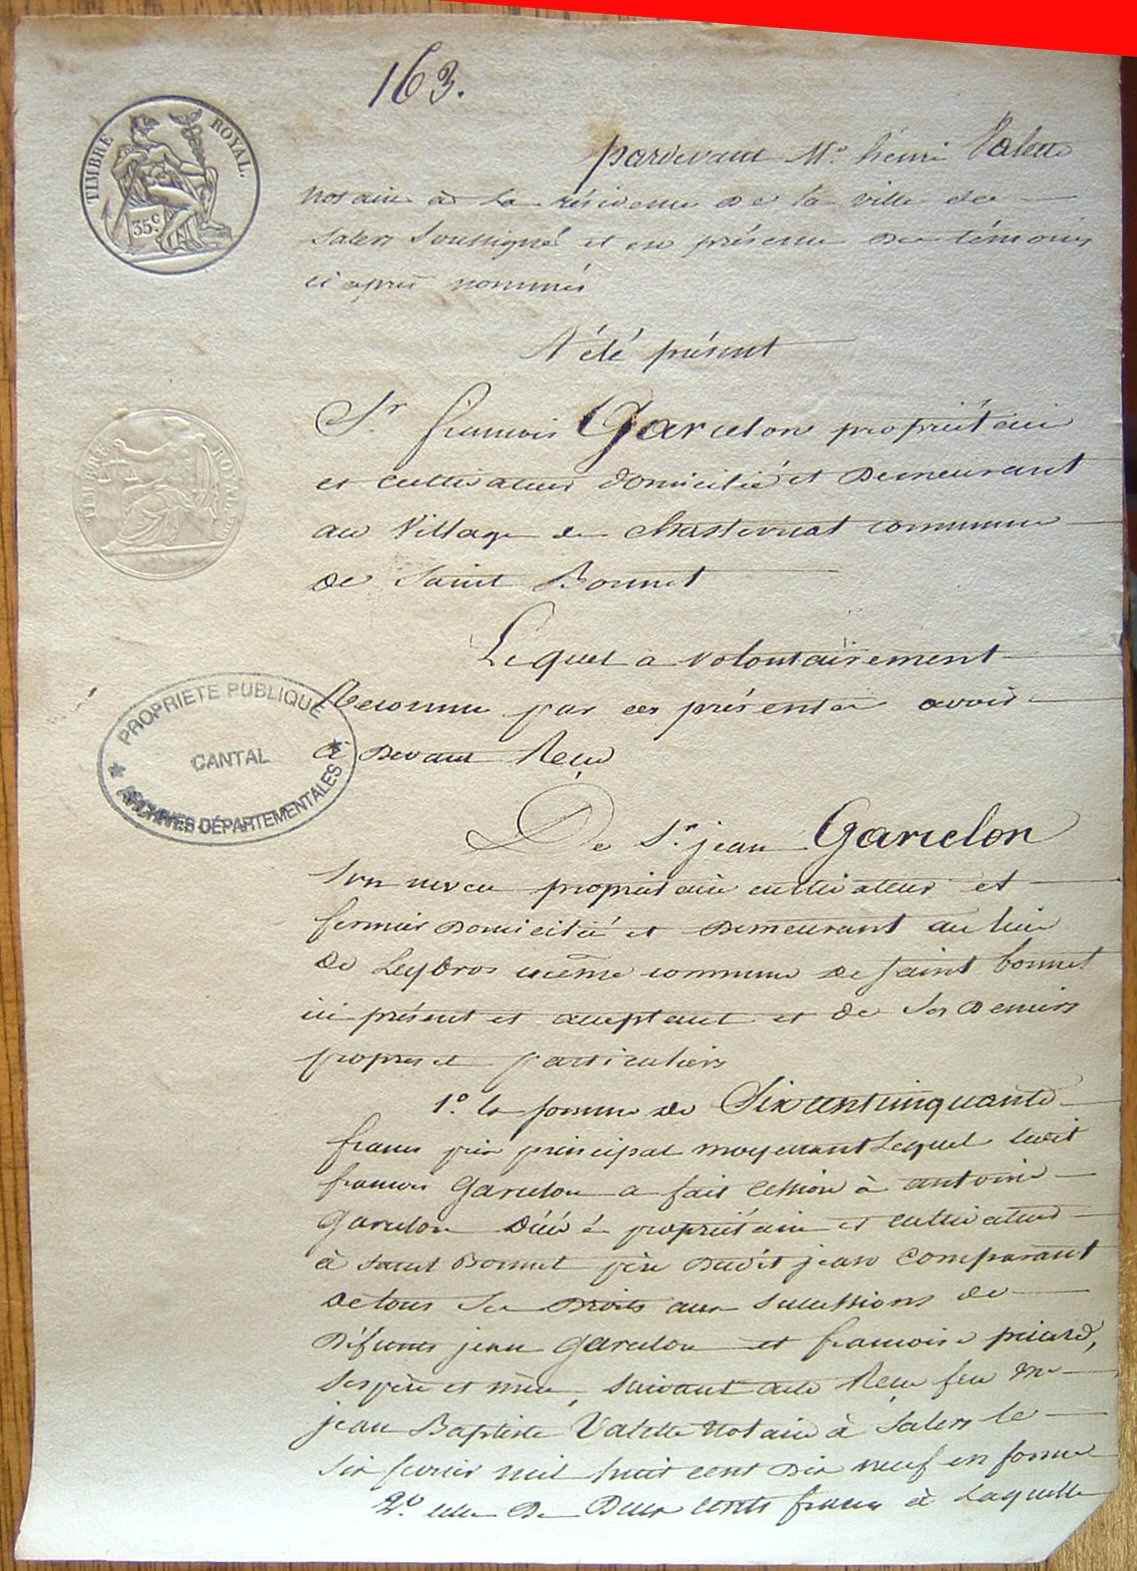 163.
TIMBRE ROYAL.
35c.
pardevant Me. henri Valette
notaire à la résidence de la ville de
Salers Soussigné et en présence des témoins
ci après nommés
A été présent
Sr. francois Garcelon propriétaire
et cultivateur domicilié et Demeurant
au Village de Chastrernat commune
de Saint Bonnet
TIMBRE ROYAL
Lequel a volontairement
Reconnu par ces présentes avoir
ci Devant Reçu
PROPRIETE PUBLIQUE
CANTAL
ARCHIVES DÉPARTEMENTALES
De Sr. jean Garcelon
Son neveu propriétaire cultivateur et
fermier Domicilié et Demeurant au lieu
de Leybros même commune de Saint bonnet
ici présent et acceptant et de Ses Deniers
propres et particuliers
1o. la somme de Six cent cinquante
francs prix principal moyennant Lequel ledit
francois Garcelon a fait Cession à antoine
Garcelon Décédé propriétaire et cultivateur
à Saint Bonnet père Dudit jean Comparant
de tous Ses Droits aux Successions de
Défunts jean Garcelon et francoise
Ses père et mère, Suivant acte Reçu feu Me
jean Baptiste Valette Notaire à Salers le
Six fevrier mil huit cent Dix neuf en forme
2o. celle De Deux cents francs à Laquelle